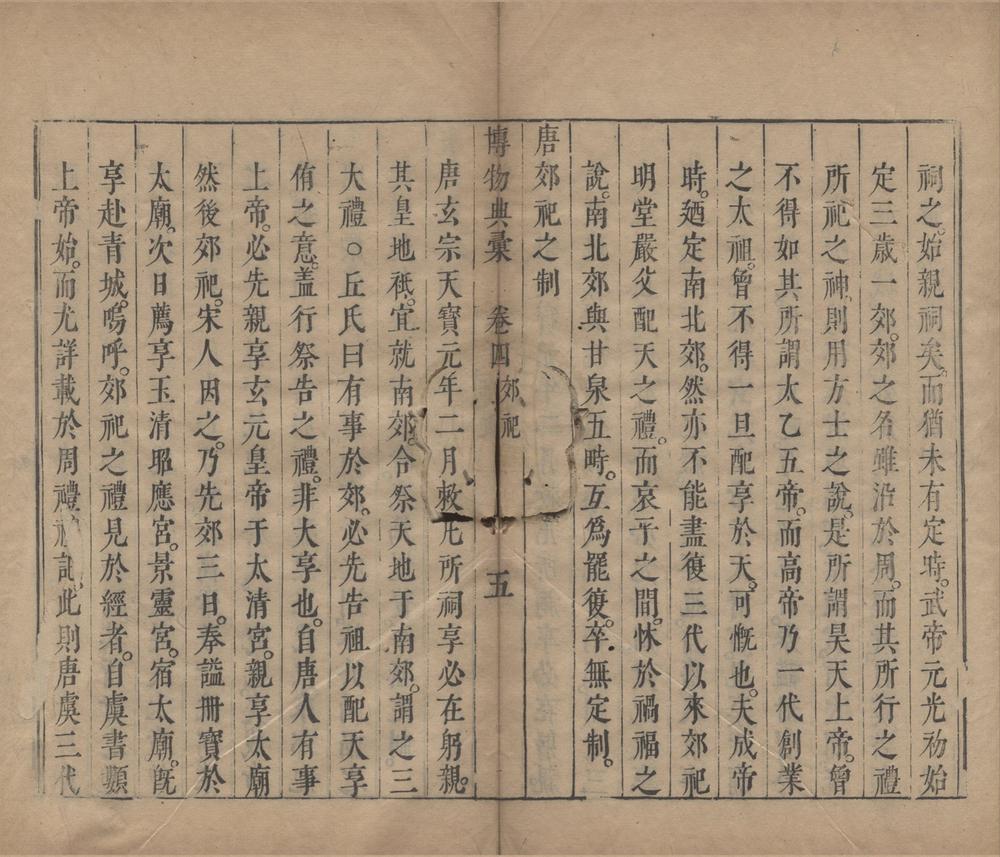 祠之。始親祠矣。而猶未有定時。武帝元光初始
定三歲一郊。郊之名雖沿於周。而其所行之禮
所祀之神。則用方士之說。是所謂昊天上帝。曾
不得如其所謂太乙五帝。而高帝乃一代創業
之太祖。曾不得一旦配享於天。可慨也。夫成帝
時。廼定南北郊。然亦不能盡復三代以來郊祀
明堂嚴父配天之禮。而哀平之間。怵於禍福之
說。南北郊與甘泉五畤。互爲罷復。卒無定制。
唐郊祀之制
博物典彙 卷四 郊祀 五
唐玄宗天寶元年二月敕凡所祠享必在躬親。
其皇地祇。宜就南郊。合祭天地于南郊。謂之三
大禮○丘氏曰有事於郊。必先告祖以配天享
侑之意。蓋行祭告之禮。非大享也。自唐人有事
上帝。必先親享玄元皇帝于太清宮。親享太廟
然後郊祀。宋人因之。乃先郊三日。奉謚冊寶於
太廟。次日薦享玉清昭應宮。景靈宮。宿太廟。旣
享赴青城。嗚呼。郊祀之禮見於經者。自虞書纇
上帝始。而尤詳載於周禮記。此則唐虞三代